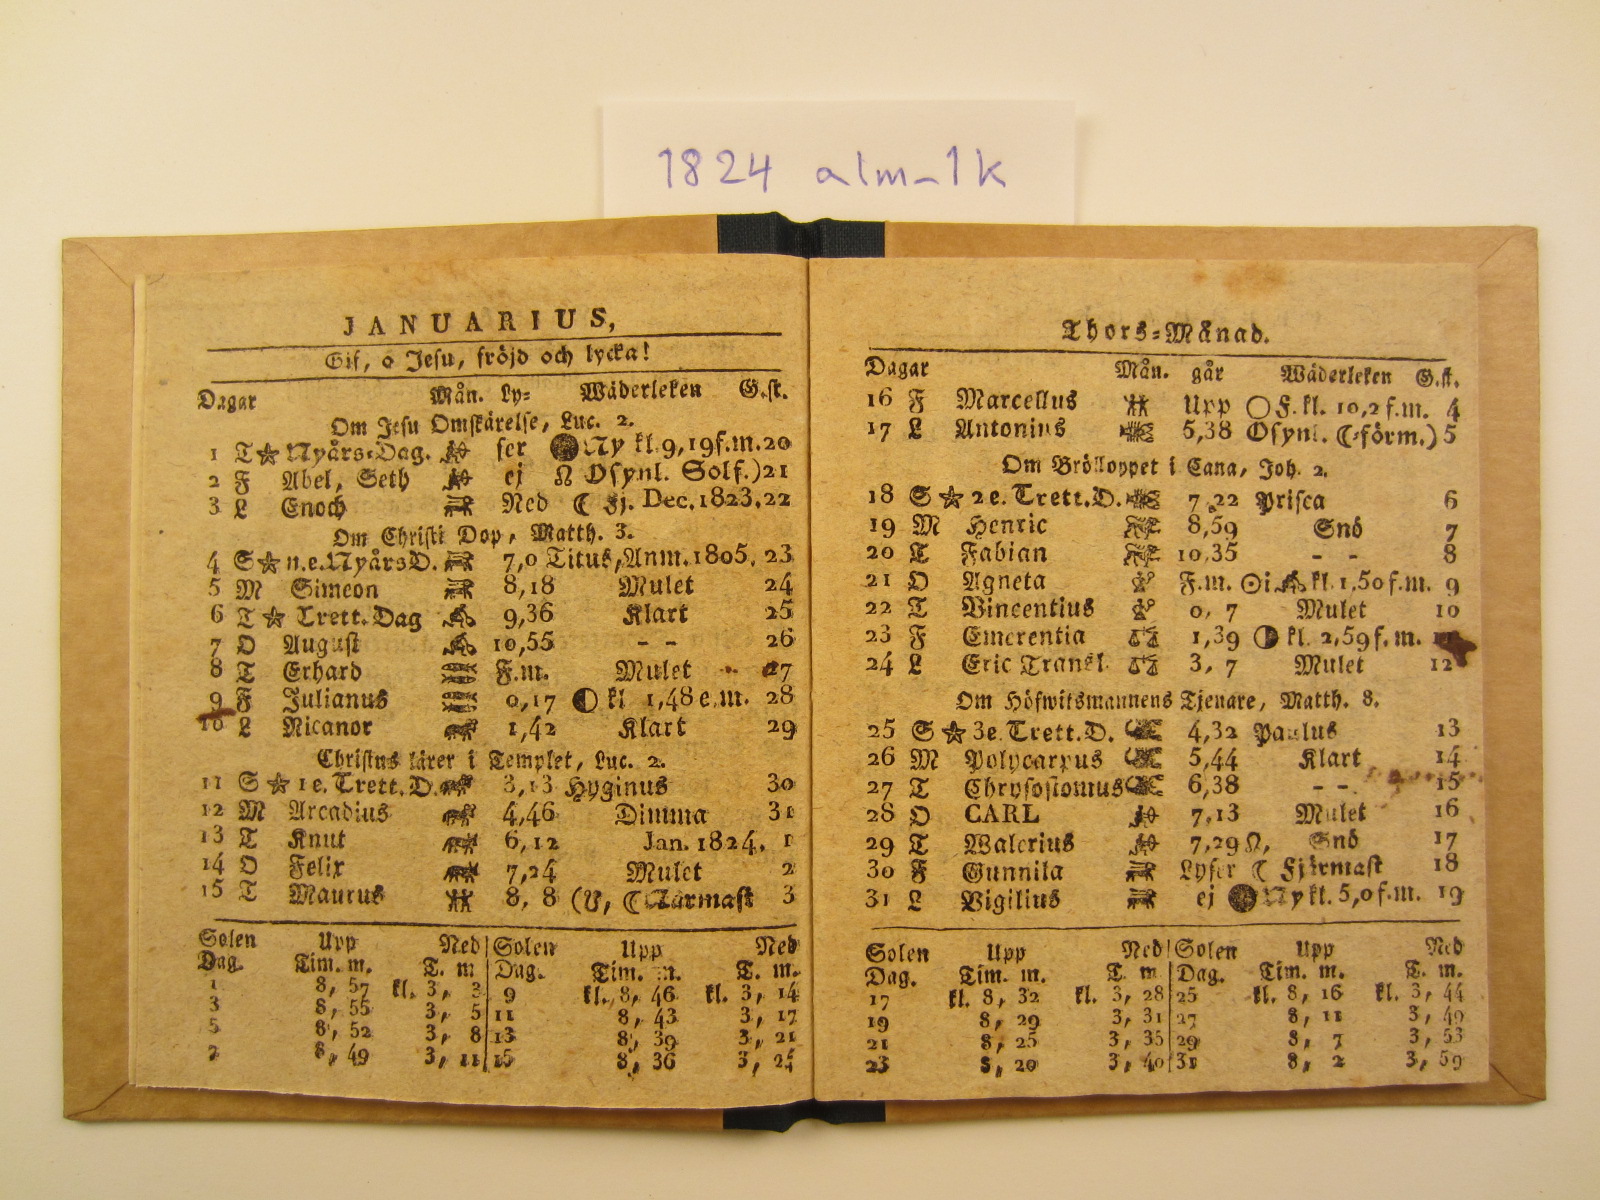 1824 alm-1k
JANUARIUS,
Gif, o Jesu, fröjd och lycka!
Dagar Mån. Ly= Wäderleken G.st.
Om Jesu Omskärelse, Luc. 2.
1 T ☆ Nyårs=Dag. ser Ny kl. 9,19 f.m. 20
2 F Abel, Seth ej ☊ Osynl. Solf.) 21
3 L Enoch Ned ☾ Fj. Dec. 1823, 22
Om Christi Dop, Matth. 3.
4 S ☆ n.e. NyårsD. 7,0 Titus, Anm. 1805, 23
5 M Simeon 8,18 Mulet 24
6 T ☆ Trett. Dag 9,36 Klart 25
7 O August 10,55 - - 26
8 T Erhard F.m. Mulet 27
9 F Julianus 0,17 kl 1,48 e.m. 28
10 L Nicanor 1,42 Klart 29
Christus lärer i Templet, Luc. 2.
11 S ☆ 1 e. Trett. D. 3,13 Hyginus 30
12 M Arcadius 4,46 Dimma 31
13 T Knut 6,12 Jan. 1824, 1
14 O Felix 7,24 Mulet 2
15 T Maurus 8, 8 (☋, ☾ Närmast 3
Solen Upp Ned Solen Upp Ned
Dag. Tim. m. T. m Dag. Tim. m. T. m.
1 8, 57 kl. 3, 3 9 kl. 8, 46 kl. 3, 14
3 8, 55 3, 5 11 8, 43 3, 17
5 8, 52 3, 8 13 8, 39 3, 21
7 8, 49 3, 11 15 8, 36 3, 25
Thors=Månad.
Dagar Mån. går Wäderleken G.st.
16 F Marcellus Upp F. kl. 10,2 f.m. 4
17 L Antonius 5,38 Osynl. (☾=förm.) 5
Om Brölloppet i Cana, Joh. 2.
18 S ☆ 2 e. Trett. D. 7,22 Prisca 6
19 M Henric 8,59 Snö 7
20 T Fabian 10,35 - - 8
21 O Agneta F.m. ☉ i ♒ kl. 1,50 f.m. 9
22 T Vincentius 0, 7 Mulet 10
23 F Emerentia 1,39 kl. 2,59 f.m.
24 L Eric Transl. 3, 7 Mulet 12
Om Höfwitsmannens Tjenare, Matth. 8.
25 S ☆ 3 e. Trett. D. 4,32 Paulus 13
26 M Polycarpus 5,44 Klart 14
27 T Chrysostomus 6,38 - - 15
28 O CARL 7,13 Mulet 16
29 T Walerius 7,29 ☊, Snö 17
30 F Gunnila Lyser ☾ Fjermast 18
31 L Vigilius ej Ny kl. 5,0 f.m. 19
Solen Upp Ned Solen Upp Ned
Dag. Tim. m. T. m Dag. Tim. m. T. m.
17 kl. 8, 32 kl. 3, 28 25 kl. 8, 16 kl. 3, 44
19 8, 29 3, 31 27 8, 11 3, 49
21 8, 25 3, 35 29 8, 7 3, 53
23 8, 20 3, 40 31 8, 2 3, 59